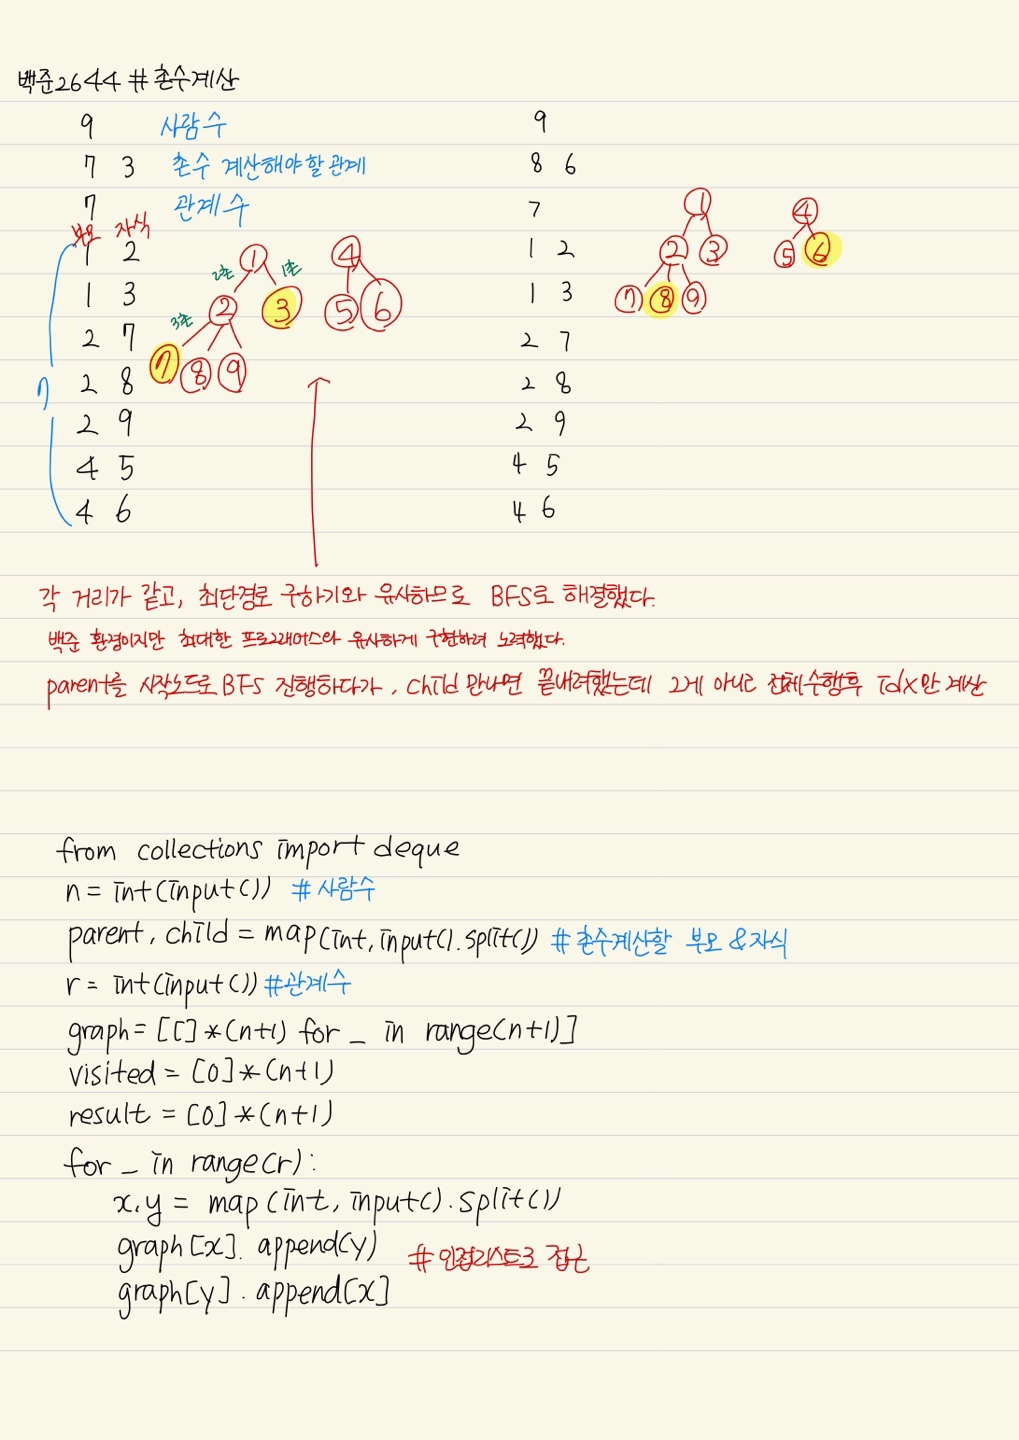 백준2644 # 촌수계산
9 사람수
7 3 촌수 계산해야할 관계
7 관계수
부모 자식
1 2
1 3
2 7
2 8
2 9
4 5
4 6
7
1
2촌 1촌
2 3
3촌
7 8 9
4
5 6
9
8 6
7
1 2
1 3
2 7
2 8
2 9
4 5
4 6
1
2 3
7 8 9
4
5 6
각 거리가 같고, 최단경로 구하기와 유사하므로 BFS로 해결했다.
백준 환경이지만 최대한 프로그래머스와 유사하게 구현하려 노력했다.
parent를 시작노드로 BFS 진행하다가, child 만나면 끝내려했는데 그게 아니고 전체수행후 idx만 계산
from collections import deque
n = int(input()) # 사람수
parent, child = map(int, input().split()) # 촌수계산할 부모 & 자식
r = int(input()) #관계수
graph = [[]*(n+1) for _ in range(n+1)]
visited = [0]*(n+1)
result = [0]*(n+1)
for _ in range(r):
x,y = map(int, input().split())
graph[x].append(y) # 인접리스트로 접근
graph[y].append[x]